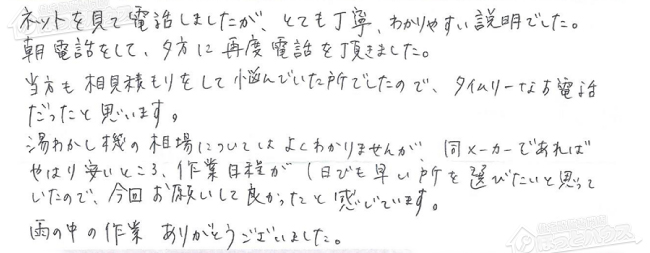 ネットを見て電話しましたが、とても丁寧、わかりやすい説明でした。
朝電話をして、夕方に再度電話を頂きました。
当方も相見積もりをして悩んでいた所でしたので、タイムリーなお電話
だったと思います。
湯わかし機の相場についてはよくわかりませんが、同メーカーであれば
やはり安いところ、作業日程が1日でも早い所を選びたいと思って
いたので、今回お願いして良かったと感じています。
雨の中の作業 ありがとうございました。